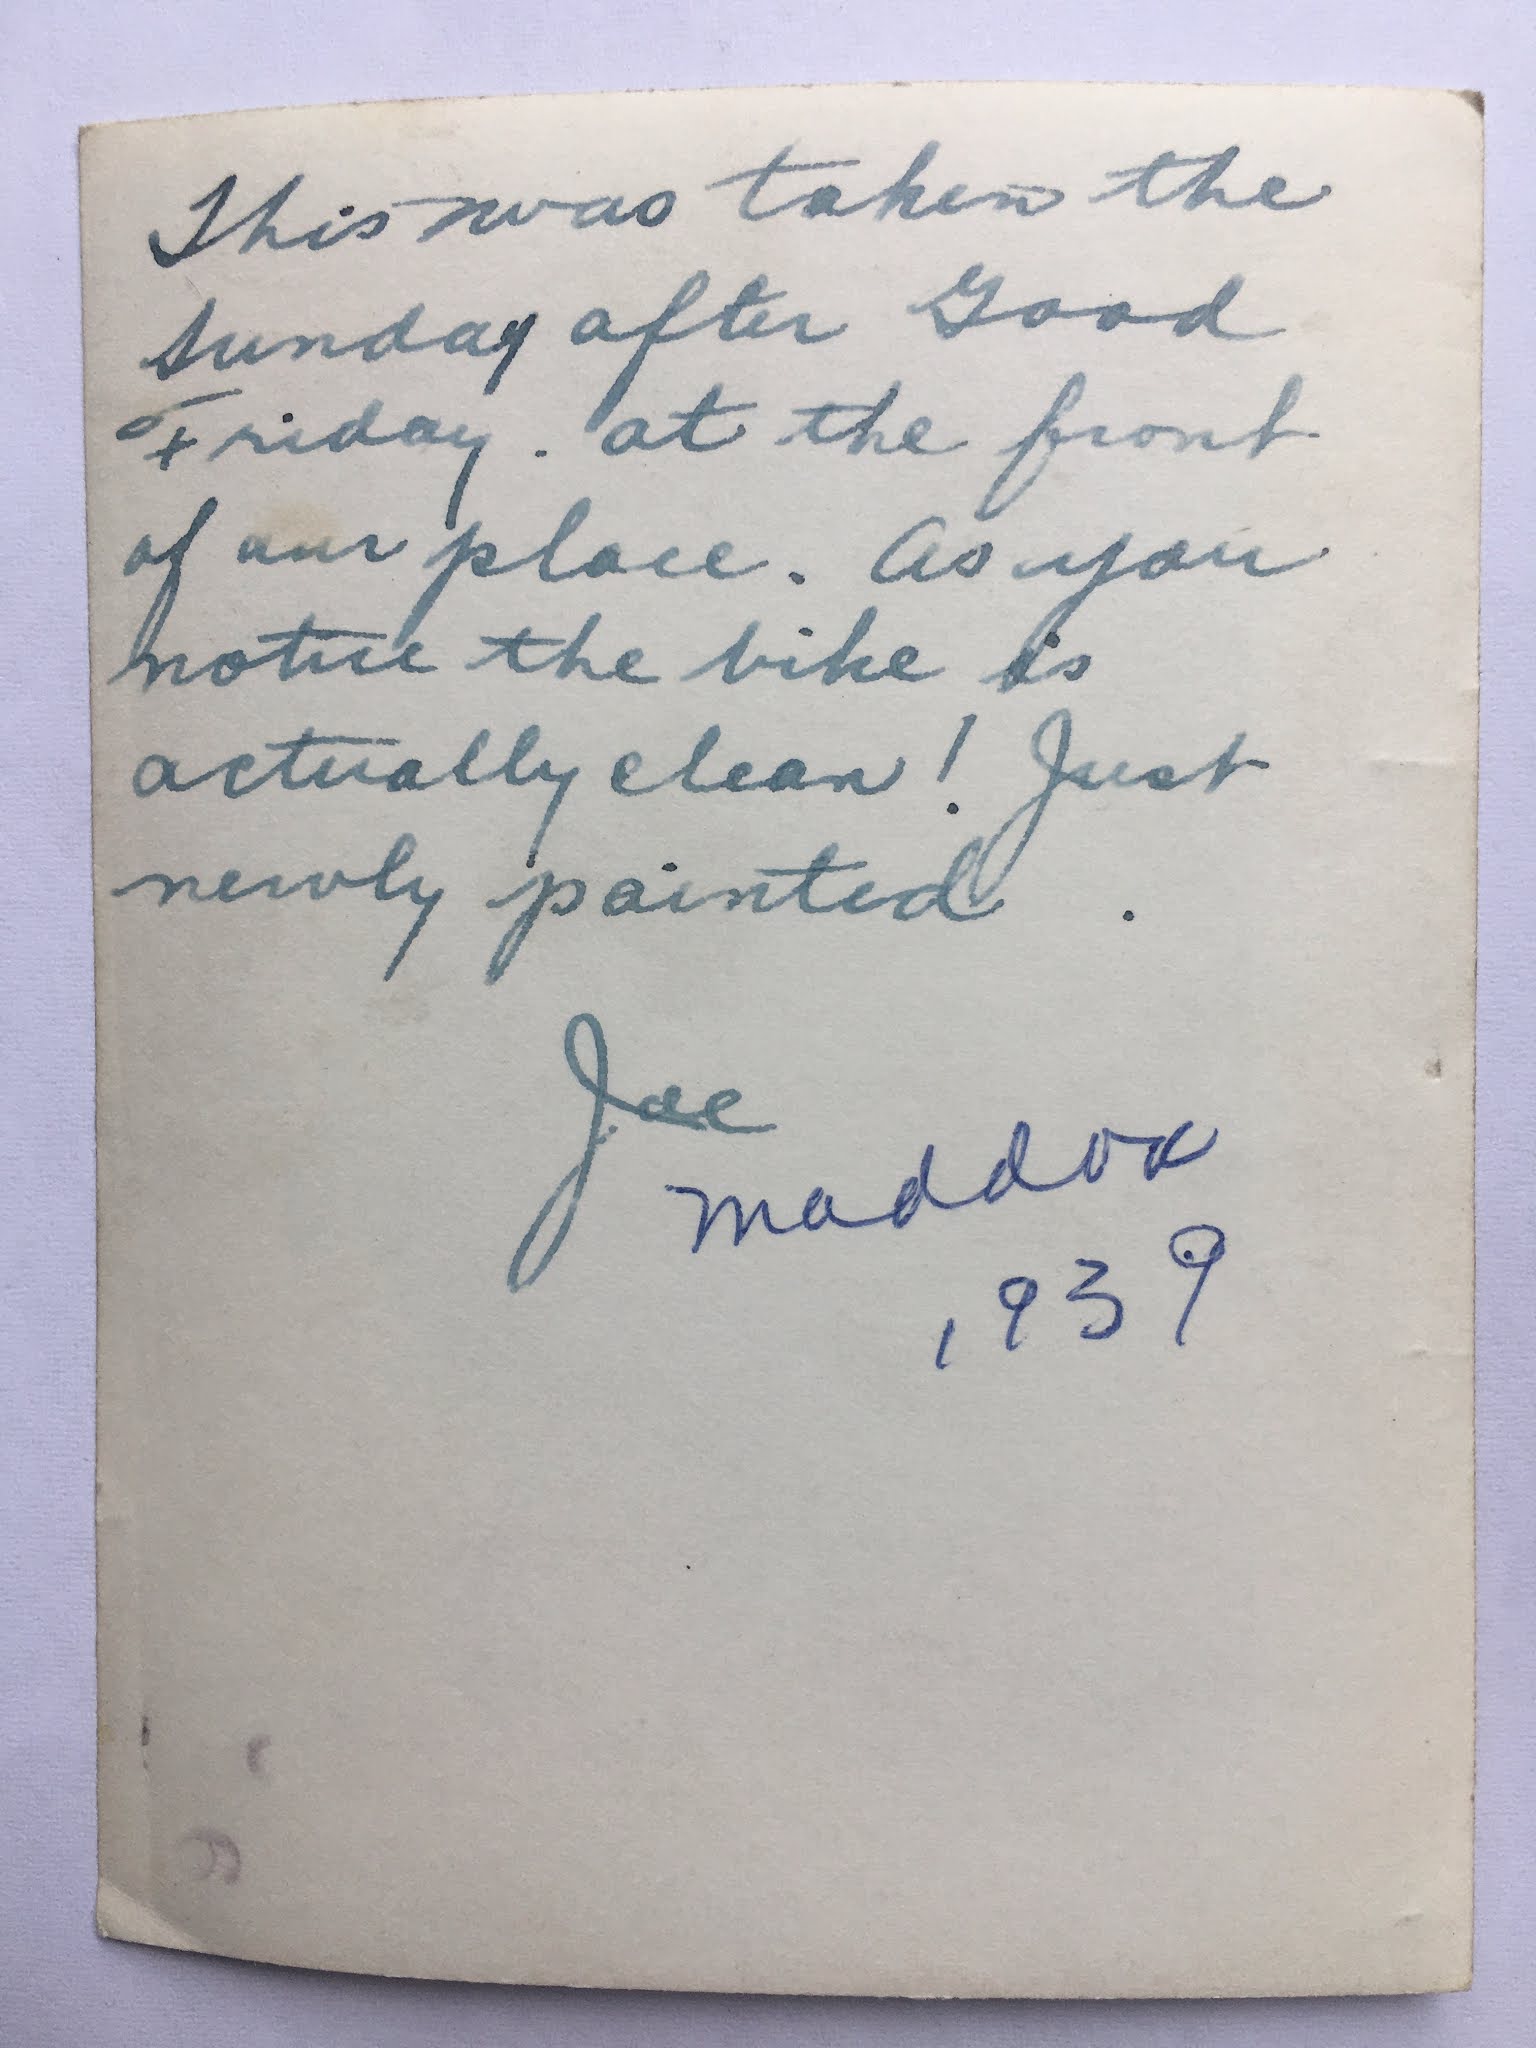 This was taken the
Sunday after Good
Friday. at the front
of our place. As you
notice the bike is
actually clean! Just
newly painted.
Joe
Maddox
1939